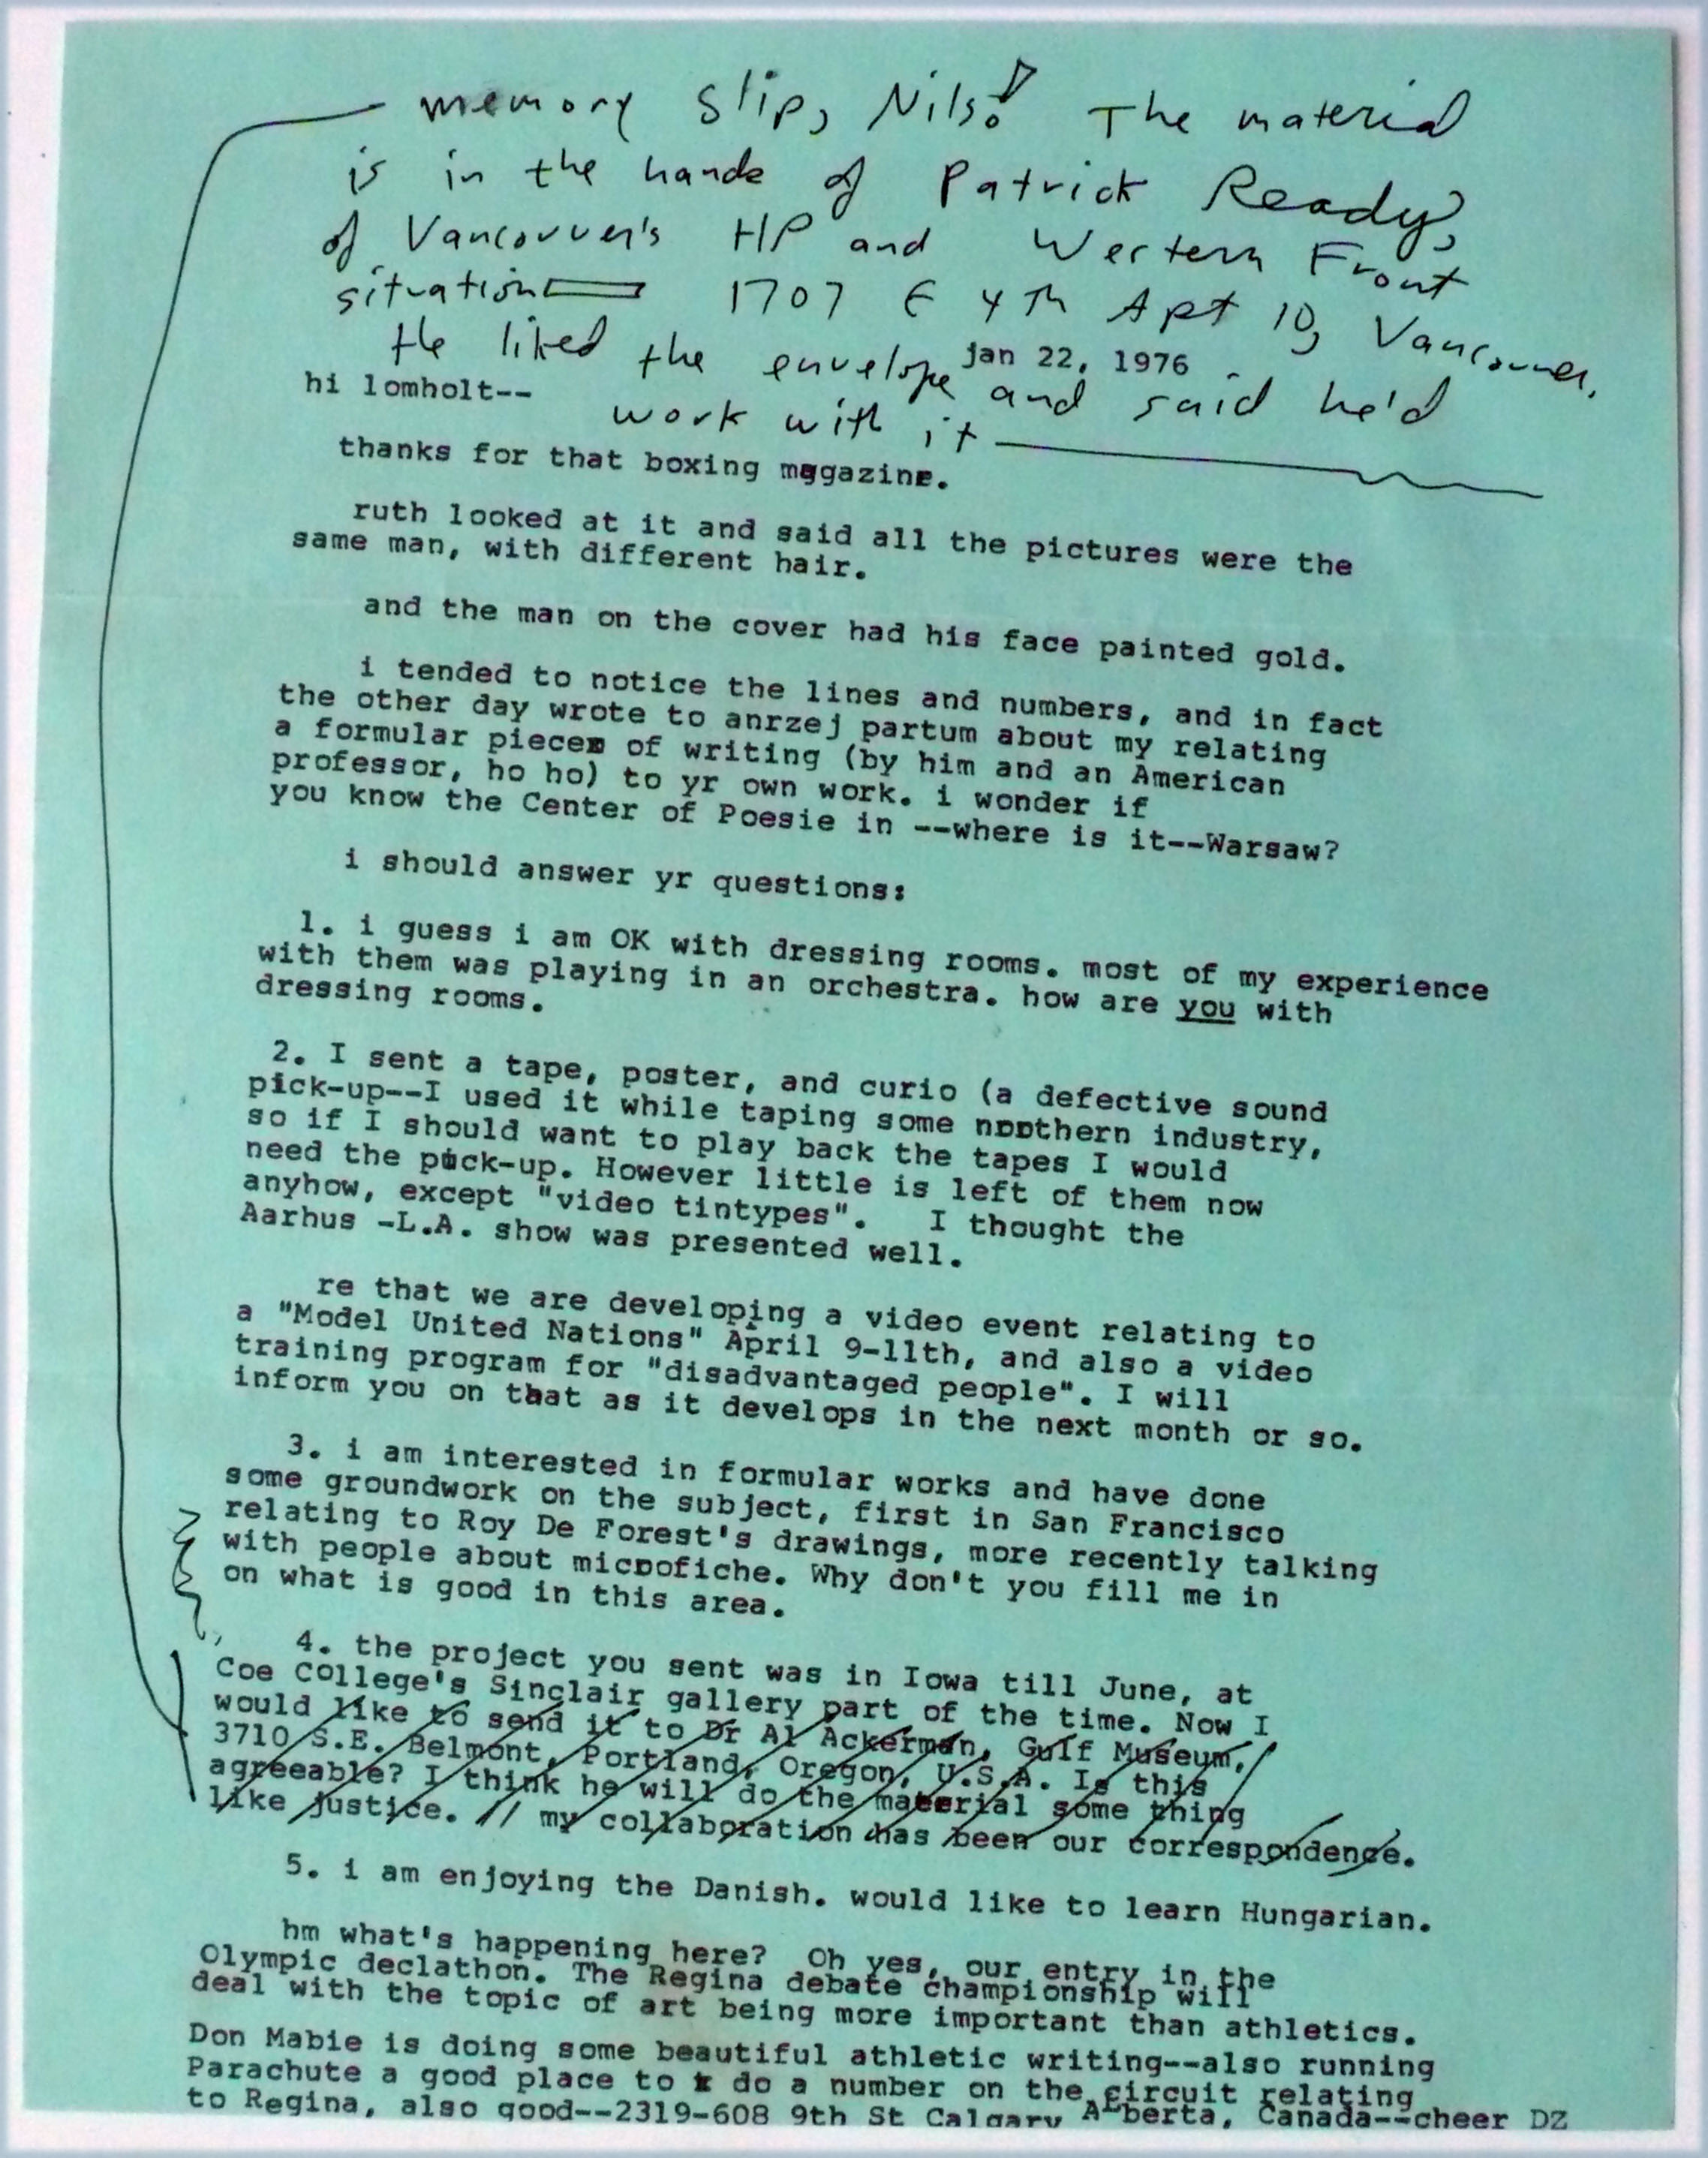 memory slip, Nils! The material
is in the hands of Patrick Ready,
of Vancouver's HP and Western Front
situation 1707 E 4th Apt 10, Vancouver.
He liked the envelope and said he'd
work with it
jan 22, 1976
hi lomholt--
thanks for that boxing magazine.
ruth looked at it and said all the pictures were the
same man, with different hair.
and the man on the cover had his face painted gold.
i tended to notice the lines and numbers, and in fact
the other day wrote to anrzej partum about my relating
a formular pieces of writing (by him and an American
professor, ho ho) to yr own work. i wonder if
you know the Center of Poesie in --where is it--Warsaw?
i should answer yr questions:
1. i guess i am OK with dressing rooms. most of my experience
with them was playing in an orchestra. how are you with
dressing rooms.
2. I sent a tape, poster, and curio (a defective sound
pick-up--I used it while taping some northern industry,
so if I should want to play back the tapes I would
need the pick-up. However little is left of them now
anyhow, except "video tintypes". I thought the
Aarhus -L.A. show was presented well.
re that we are developing a video event relating to
a "Model United Nations" April 9-11th, and also a video
training program for "disadvantaged people". I will
inform you on that as it develops in the next month or so.
3. i am interested in formular works and have done
some groundwork on the subject, first in San Francisco
relating to Roy De Forest's drawings, more recently talking
with people about microfiche. Why don't you fill me in
on what is good in this area.
4. the project you sent was in Iowa till June, at
Coe College's Sinclair gallery part of the time. Now I
would like to send it to Dr Al Ackerman, Gulf Museum,
3710 S.E. Belmont, Portland, Oregon, U.S.A. Is this
agreeable? I think he will do the material some thing
like justice. // my collaboration has been our correspondence.
5. i am enjoying the Danish. would like to learn Hungarian.
hm what's happening here? Oh yes, our entry in the
Olympic declathon. The Regina debate championship will
deal with the topic of art being more important than athletics.
Don Mabie is doing some beautiful athletic writing--also running
Parachute a good place to do a number on the circuit relating
to Regina, also good--2319-608 9th St Calgary Alberta, Canada--cheer DZ